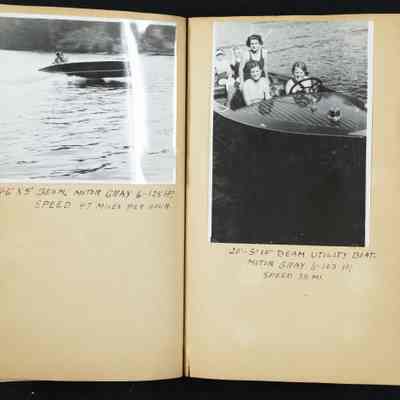 X 5' BEAM, MOTOR GRAY 6-125 H,
SPEED 47 MILES PER HOUR
BEAM UTILITY BOAT.
MOTOR GRAY 6-103 H,
SPEED 38 MI.